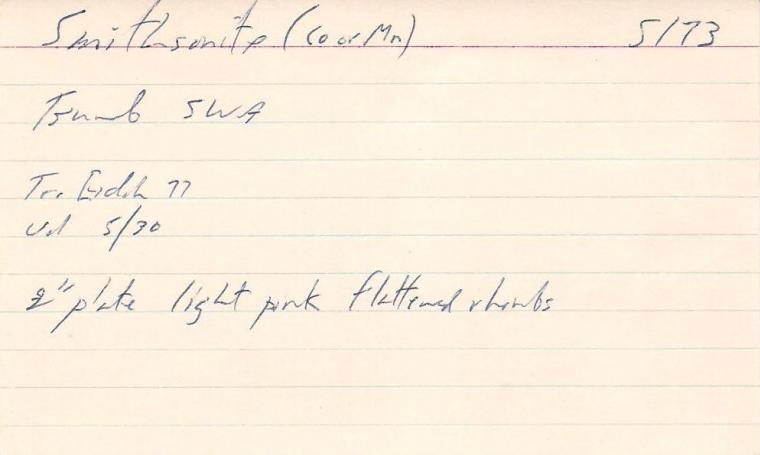 Smithsonite (Co or Mn) 5/73
Tsumb SWA
Tr. 77
Val 5/30
2" plate light pink flattened rhombs